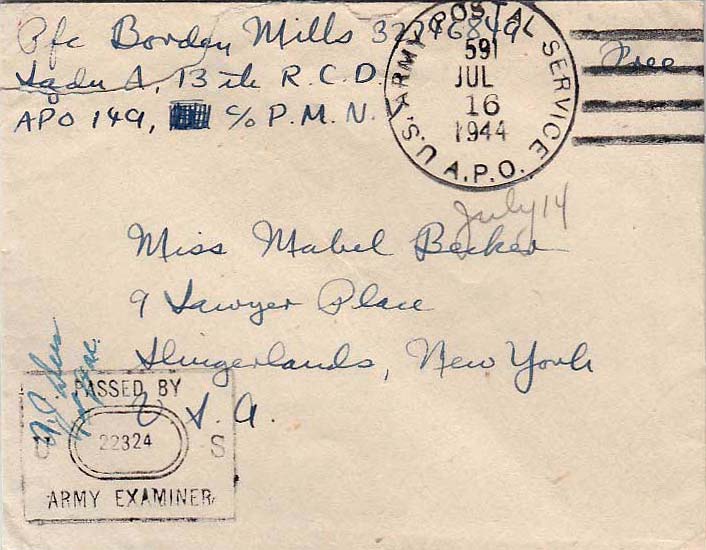 Pfc Borden Mills 32946849
Lgdu A, 13th R.C.D.
APO 149, c/o P.M.N.
Free
U.S. ARMY POSTAL SERVICE
591
JUL
16
1944
A.P.O.
July 14
Miss Mabel Becker
9 Sawyer Place
Slingerlands, New York
U.S.A.
PASSED BY
U 22324 S
ARMY EXAMINER